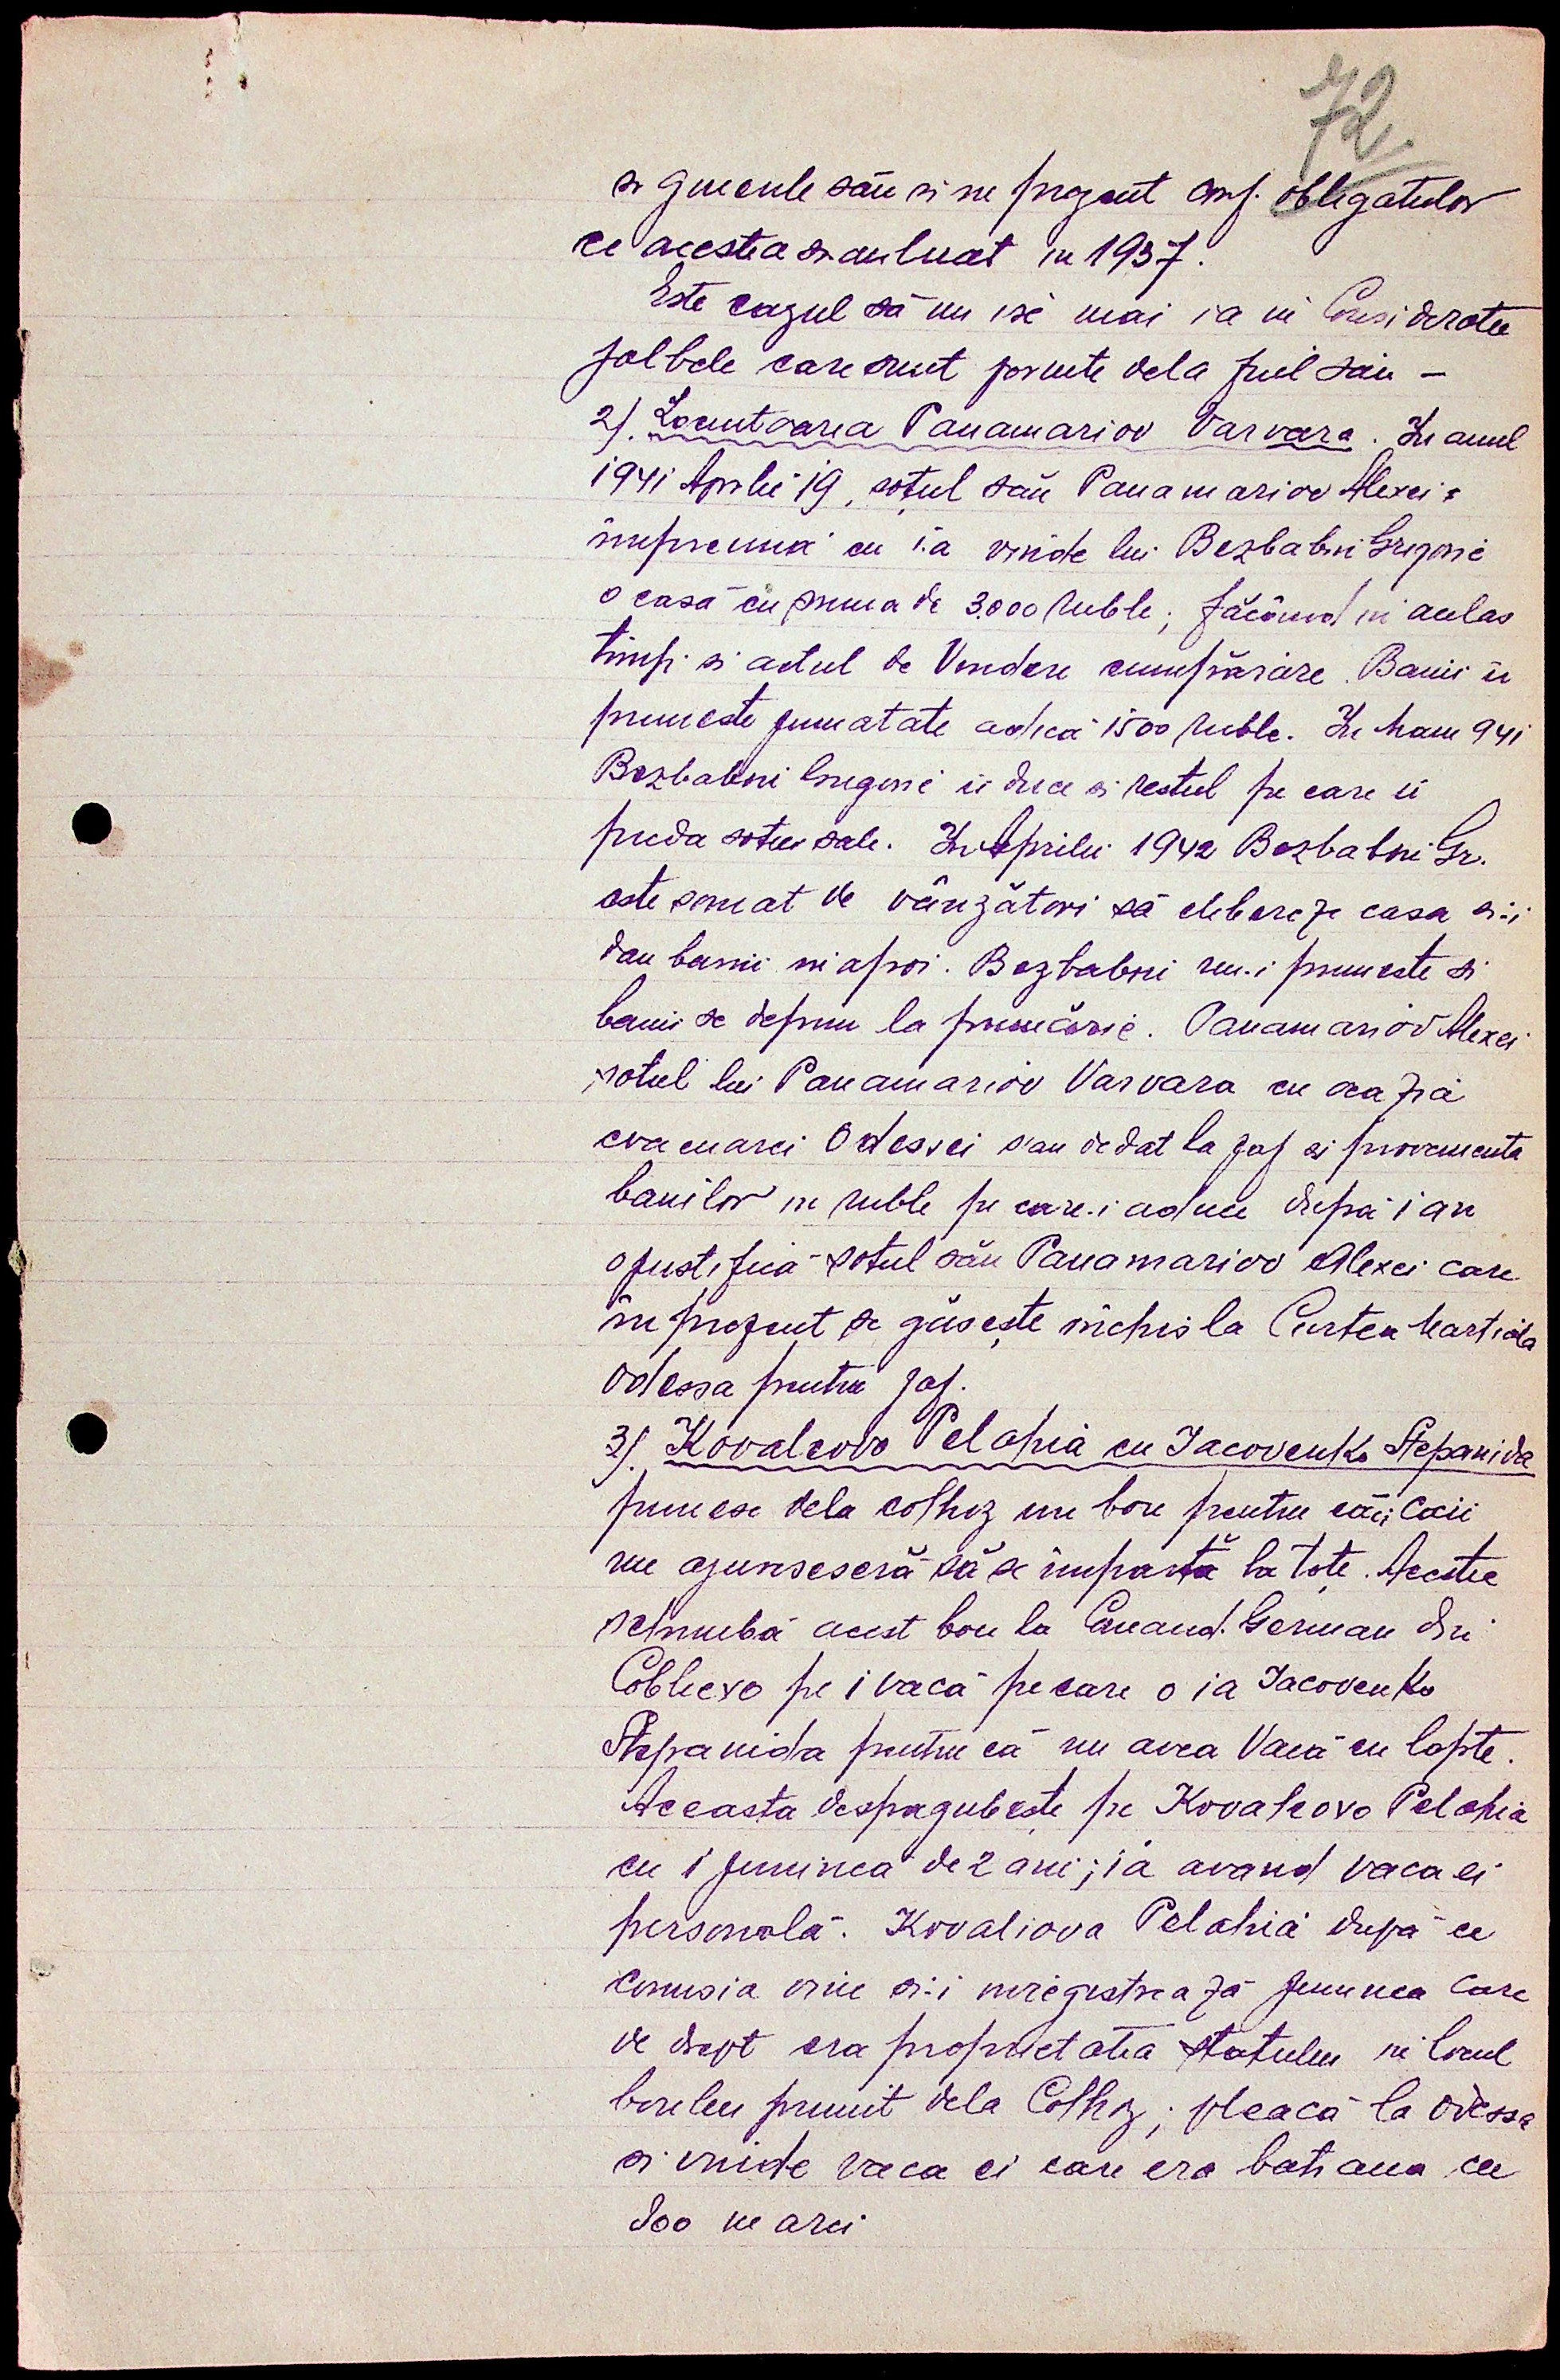 72
si ginerele său si in prezent conf. obligatiilor
ce acestea si-au luat in 1937.
Este cazul să nu se mai ia in Consideratie
jalbele care sunt pornite dela fiul său -
2). Locuitoarea Panamariov Varvara. In anul
1941 Aprilie 19, soțul său Panamariov Alexei
impreuna cu ia vinde lui Bezbabni Grigorie
o casă cu suma de 3.000 ruble; făcând in acelas
timp si actul de Vindere cumpărare. Banii ii
primeste jumatate adică 1500 ruble. In Maiu 941
Bezbabni Grigorie ii duce si restul pe care ii
preda sotiei sale. In Aprilie 1942 Bezbabni Gr.
este somat de vânzători să elibereze casa si-i
dau banii inapoi. Bezbabni nu-i primeste si
banii se depun la primărie. Panamariov Alexei
sotul lui Panamariov Varvara cu ocazia
evacuarei Odessei s'au dedat la jaf si provenienta
banilor in ruble pe care-i aduce după 1 an
o justifică sotul său Panamariov Alexei care
in prezent se găsește inchis la Curtea Martiala
Odessa pentru jaf.
3). Kovalcovo Pelahia cu Iacovenko Stepanida
primesc dela colhoz un bou pentru că caii
nu ajunseseră să se impartă la tote. Acestea
schimbă acest bou la Comand. German din
Coblievo pe 1 vacă pe care o ia Iacovenko
Stepanida pentru că nu avea Vacă cu lapte.
Aceasta despagubește pe Kovalcovo Pelahia
cu 1 juninca de 2 ani; ia avand vaca ei
personală. Kovaliova Pelahia după ce
comisia vine si-i inregistrează juninca care
de drept era proprietatea statului in locul
boului primit dela Colhoz; pleacă la Odessa
si vinde vaca ei care era batrana cu
800 marci